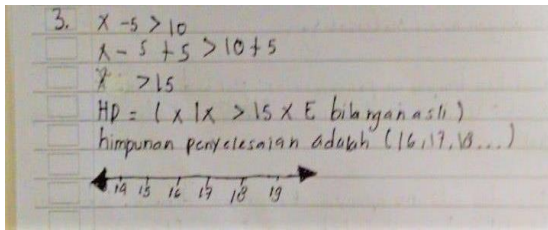 3. x - 5 > 10
x - 5 + 5 > 10 + 5
x > 15
HP = ( x | x > 15 x E bilangan asli )
himpunan penyelesaian adalah (16, 17, 18 ... )
14 15 16 17 18 19